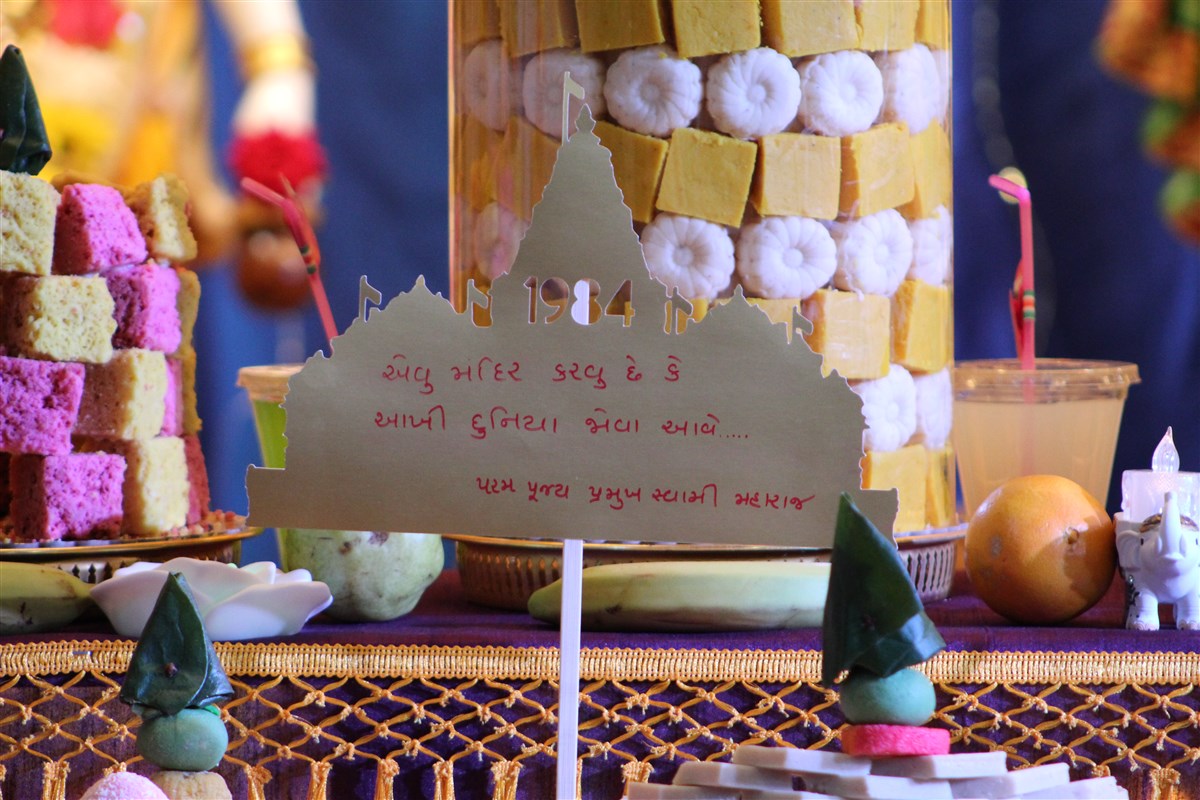 1984
એવુ મંદિર કરવુ છે કે
આખી દુનિયા જોવા આવે.....
પરમ પૂજ્ય પ્રમુખ સ્વામી મહારાજ